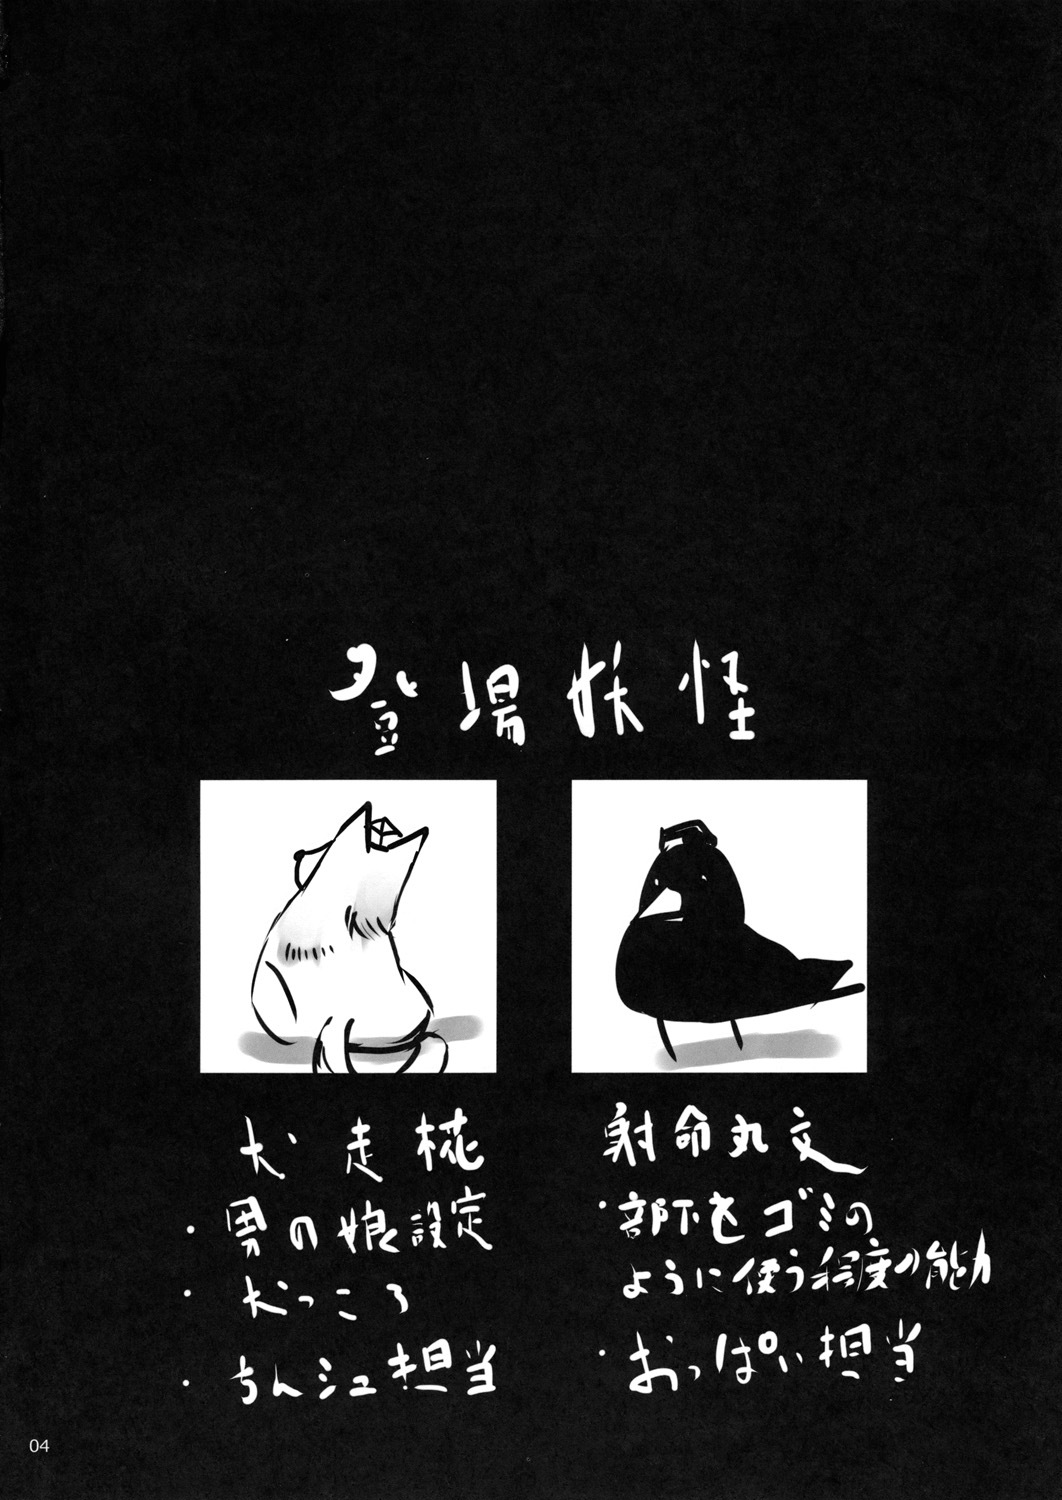 登場妖怪
犬走椛
・男の娘設定
・犬っころ
・ちんシュ担当
射命丸文
・部下をゴミの
ように使う程度の能力
・おっぱい担当
04